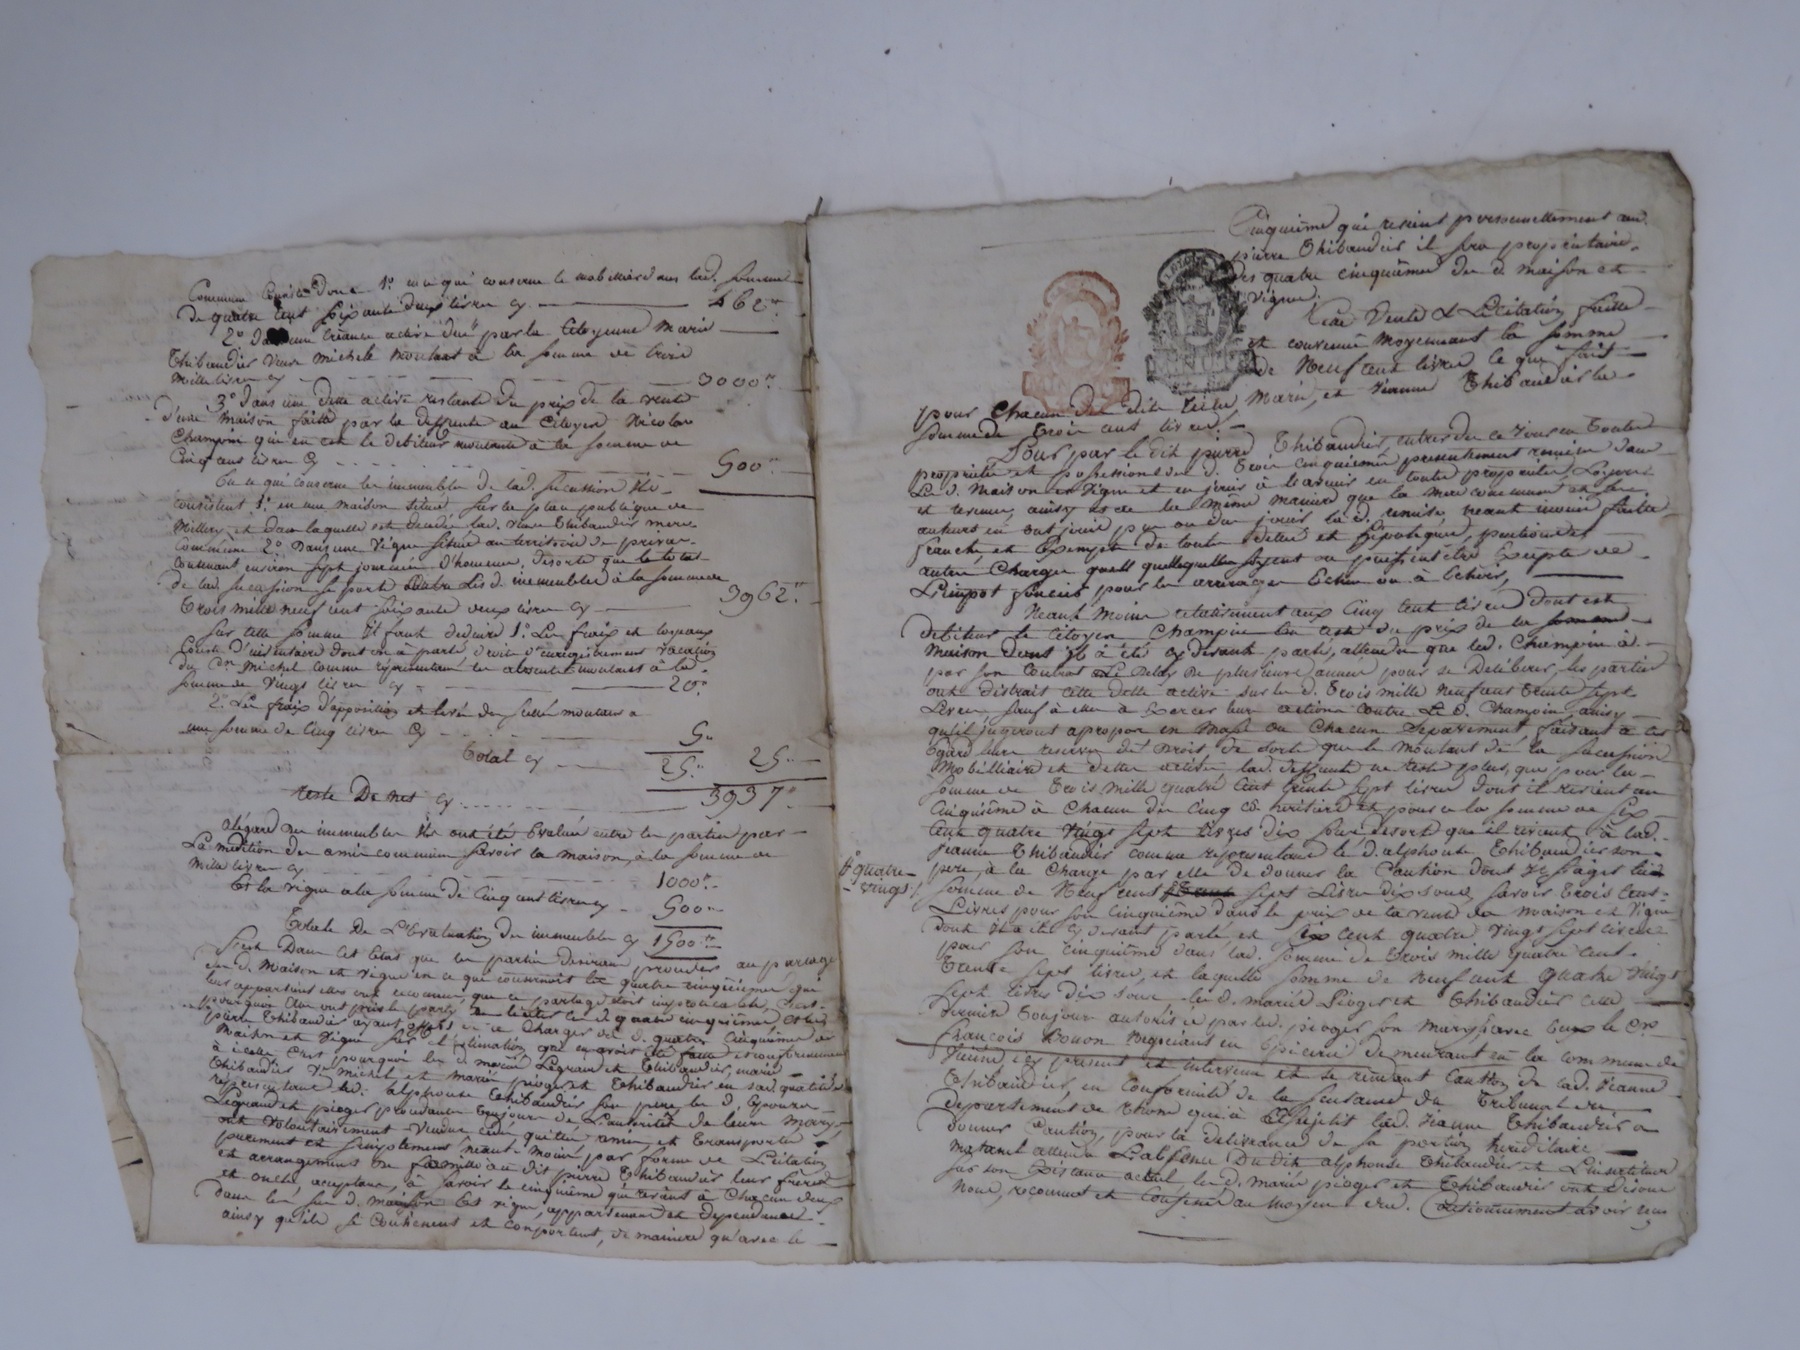 commune consiste donc 1º en ce qui concerne le mobilliaire dans lad. somme
de quatre cent soixante deux livres cy 462
2º Dans une creance active due par la Citoyenne Marie
Thibaudier veuve Michele montant à la somme de trois
mille livres cy 3000
3º dans une dette active restante du prix de la vente
d'une maison faite par la deffunte au Citoyen Nicolas
Champin qui en est le debiteur montante à la somme de
Cinq cens livres cy 500
En ce qui concerne les immeubles de lad. succession ils
consistent 1º en une maison située sur la place publique de
Millery et dans laquelle est decedée lad. veuve Thibaudier mere
commune 2º Dans une vigne située au territoire de
contenant environ sept journées d'homme, desorte que le total
de lad. succession se porte outre les d. immeubles à la somme de
trois mille neuf cent soixante deux livres cy 3962
sur cette somme il faut deduire 1º Les fraix et
d'inventaire dont on à parlé droits d'enregistrement vacation
du cen Michel comme representant les absents montant à la
somme de vingt livres cy 20
2º Les fraix d'apposition et levée des scellés montans a
une somme de cinq livres cy 5
Total cy 25 25
reste De net cy 3937
Al'égard des immeubles ils ont été Evalués entre les parties par
La mediation des amis communs savoir la maison, à la somme de
mille livres cy 1000
Et la vigne a la somme de Cinq cent livres cy 500
Totale De L'Evaluation des immeubles cy 1500
C'est Dans cet état que les parties desirant proceder au partage
des d. Maison et vigne en ce qui concernoit les quatre cinquiemes qui
leur appartient elles ont reconnu, que ce partage étoit impraticable, c'est
pourquoi elles ont pris le party de liciter les d. quatre cinquiemes et led.
pierre Thibaudier ayant offert de se Charger des d. quatre Cinquiemes de
Maison et vigne sur l'Estimation qui en avoit été faite et conformement
à icelle C'est pourquoi les d. mariés Legrand et Thibaudier, marie
Thibaudier Ve michel et mariés pioger et Thibaudier en sad. qualité de
representant led. alphonse Thibaudier son pere les d. epouses
Legrand et pioger procedant toujours de L'autorité de leurs Marys
ont volontairement vendu cedé, quitté remis et transporté
purement et simplement neant moins par forme de Licitation
et arrangement de famille au dit pierre Thibaudier leur frere
et oncle acceptant, à savoir le cinquieme qui revient à Chacun d'eux
dans les sus d. maison Et vigne, appartenances et dependances
ainsy qu'ils se contiennent et comportent, de maniere qu'avec le
Cinquième qui revient personnellement aud.
pierre Thibaudier il sera proprietaire
des quatre cinquièmes des d. maison et
vigne.
Vente et Licitation faite
et convenue moyennant la somme
de Neuf cent livres ce qui fait
pour Chacun des dits Marie, et Jeanne Thibaudier la
somme de trois cent livres
Pour par le dit pierre Thibaudier, entrer de ce jour en toutes
proprieté et possession des d. trois cinquiemes presentement remis dans
Les d. maison et vigne et en jouir à l'avenir en toute proprieté,
et de la même maniere que la mere commune et ses
auteurs en ont joui pu ou du jouir la d. remise, neant moins faite
franche et Exempte de toutes dettes et hipoteques, pentions et
autres Charges quels quelquelles soyent ou puissent être Excepté de
L'impot foncier pour les arrerages Echus ou à Echoir,
Neant moins relativement aux Cinq cent livres dont est
debiteur le citoyen Champin en reste du prix de la
maison dont il à été cy devant parlé, attendu que led. Champin à
par son Contrat Le Delay de plusieurs années pour se Deliberer, les parties
ont distrait cette dette active sur les d. trois mille neuf cent trente sept
Livres, sauf à eux à Exercer leurs actions contre Le d. Champin, ainsy
qu'ils jugeront apropos en Mass ou Chacun separement, faisant à cet
Egard leurs reserves de Droit de sorte que le montant de la succession
Mobilliaire et dettes actives lad. deffunte ne reste plus, que pour la
somme de trois mille quatre cent trente sept livres dont il revient un
Cinquième à Chacun des Cinq co heritiers et pour ce la somme de six
cent quatre vingt sept Livres dix sous desorte qu'il revient à lad.
Jeanne Thibaudier comme representant le d. alphonse Thibaudier son
pere, à la Charge par elle de donner la Caution dont il s'agit la
quatre
vingt
somme de Neuf cent sept Livres dix sous, savoir trois cent
Livres pour son cinquième dans le prix de la vente de Maison et vigne
dont il a été cy devant parlé et six cent quatre vingt sept livres
pour son cinquième dans lad. somme de trois mille quatre cent
trente sept livres, et laquelle somme de neuf cent quatre vingt
sept livres dix sous les d. mariés Pioger et Thibaudier cette
derniere toujours autorisée par led. pioger son Mary, avec Eux le cn.
François Bouon Negociant en Epicerie demeurant en la commune de
icy present et intervenu et se rendant caution de lad. Jeanne
Thibaudier, en conformité de la sentence du Tribunal du
departement du Rhone qui à assujetit lad. Jeanne Thibaudier a
donner Caution, pour la delivrance de sa portion hereditaire
maternel attendu L'absence Dudit alphonse Thibaudier et L'incertitude
sur son Existance actuel, les d. mariés pioger et Thibaudier ont disons
nous, reconnu et confessé au moyen dud. Cautionnement avoir reçu